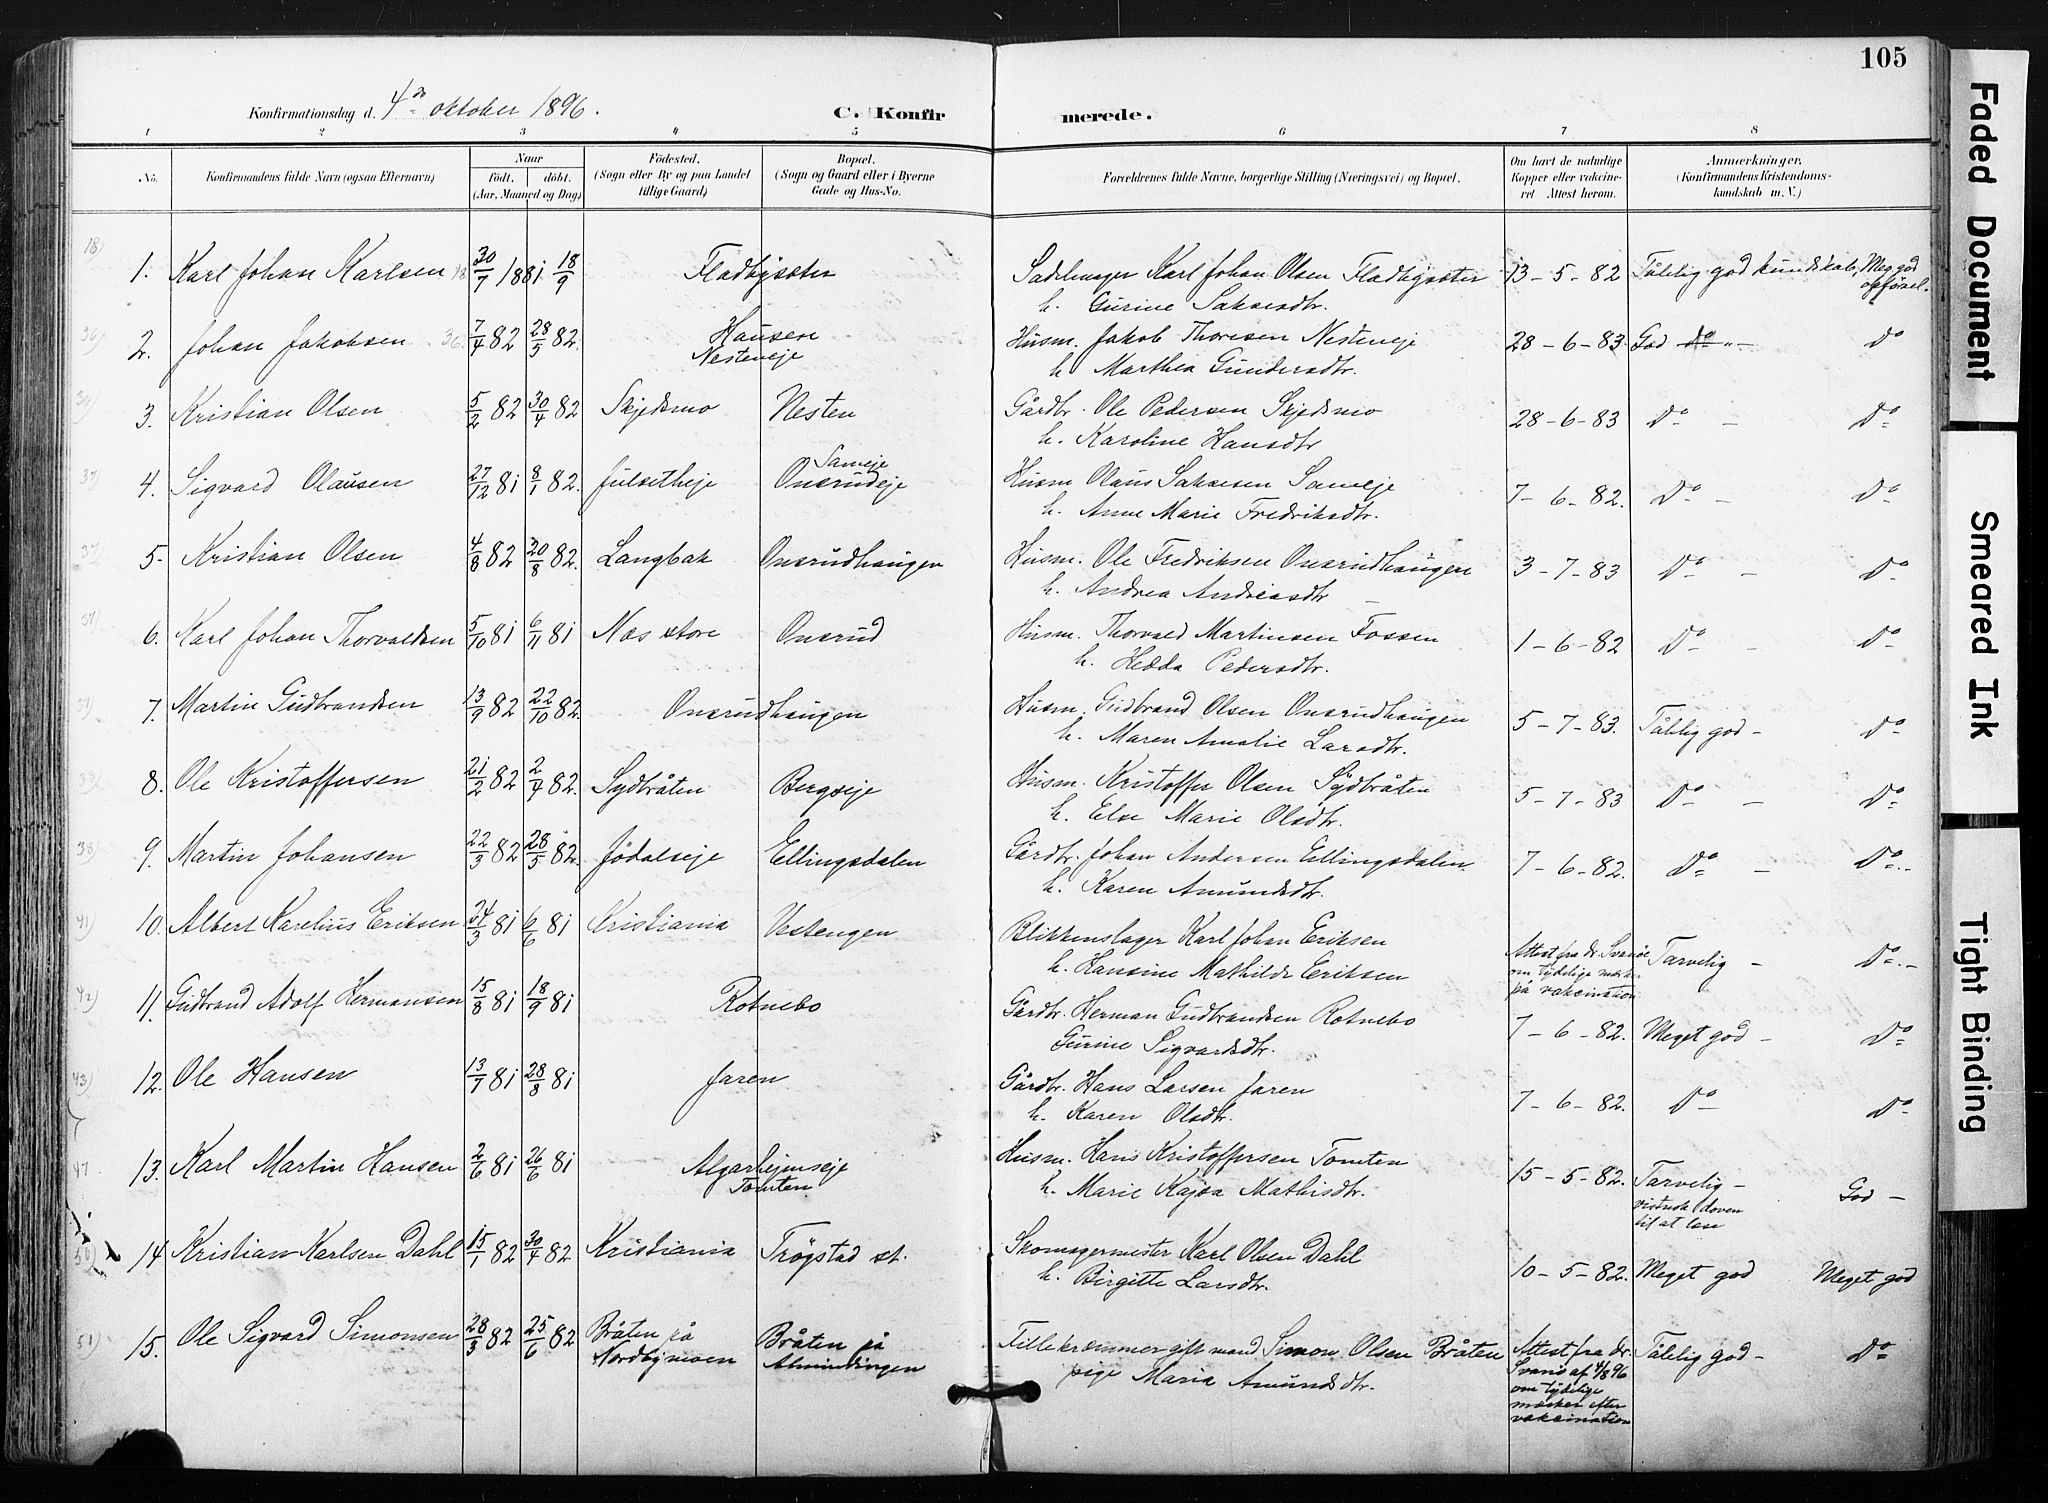 105
Konfirmationsdag d. 4de oktober 1896.
C. Konfirmerede.
1 2 3 4 5 6 7 8
No. Konfirmandens fulde Navn (ogsaa Efternavn) Naar født. døbt. (Aar, Maaned og Dag) Fødested. (Sogn eller By og paa Landet tillige Gaard) Bopæl. (Sogn og Gaard eller i Byerne Gade og Hus-No. Forældrenes fulde Navne, borgerlige Stilling (Næringsvei) og Bopæl. Om havt de naturlige Kopper eller vaccineret Attest herom. Anmærkninger. (Konfirmandens Kristendomskundskab m. V.)
18) 1. Karl Johan Karlsen 30/7 1881 18/9 Fladbysæter Sadelmager Karl Johan Olsen Fladbysæter 13-5-82 Tålelig god kundskab, Meg. god opførsel.
h. Gurine Saksesdtr.
36) 2. Johan Jakobsen 36. 7/4 82 28/5 82. Hausen Husm. Jakob Thoresen Nesteneje 28-6-83. God Do " - Do
Nesteneje h. Marthea Gundersdtr.
36) 3. Kristian Olsen 5/2 82 30/4 82 Skjedsmo Nesten Gårdbr. Ole Pedersen Skjedsmo 28-6-83 Do - Do
h. Karoline Hansdtr
37) 4. Sigvard Olausen 27/12 81 8/1 82. Julsetheje Sameje Onsrudeje Husm Olaus Saksesen Sameje 7-6-82. Do - Do
h. Anne Marie Fredriksdtr.
37) 5. Kristian Olsen 4/8 82 20/8 82. Langbak Onsrudhaugen Husm. Ole Fredriksen Onsrudhaugen 3-7-83 Do - Do
h. Andrea Andreasdtr
37) 6. Karl Johan Thorvaldsen 5/10 81 6/11 81 Næs store Onsrud Husm. Thorvald Martinsen Fossen 1-6-82 Do - Do
h. Hedda Pedersdtr.
37) 7. Martin Gudbrandsen 13/9 82 22/10 82. Onsrudhaugen Husm. Gudbrand Olsen Onsrudhaugen 5-7-83. Tålelig god - Do
h. Maren Amalie Larsdtr.
33) 8. Ole Kristoffersen 21/2 82 2/4 82. Sydbråten Bergseje Husm. Kristoffer Olsen Sydbråten 5-7-83 Do - Do
h. Else Marie Olsdtr.
38) 9. Martin Johansen 22/3 82 28/5 82. Jødalseje Ellingsdalen Gårdbr. Johan Andersen Ellingsdalen 7-6-82. Do - Do -
h. Karen Amundsdtr.
41) 10. Albert Karelius Eriksen 24/3 81 6/6 81 Kristiania Vestengen Blikkenslager Karl Johan Eriksen Attest fra dr. Svanøe om tydelige mærker på vaksination Tarvelig - Do -
h. Hansine Mathilde Eriksen
42) 11. Gudbrand Adolf Hermansen 15/8 81 18/9 81 Rotnebo Gårdbr. Herman Gudbrandsen Rotnebo 7-6-82. Meget god - Do
Gurine Sigvardsdtr.
43) 12. Ole Hansen 13/7 81 28/8 81 Jaren Gårdbr. Hans Larsen Jaren 7-6-82. Do - Do
h. Karen Olsdtr.
47 13. Karl Martin Hansen 2/6 81 26/6 81 Algarhejmseje Husm. Hans Kristoffersen Tomten 15-5-82. Tarvelig - God -
Tomten h. Marie Kajsa Mathisdtr. vistnok doven til at læse
50) 14. Kristian Karlsen Dahl 15/1 82 30/4 82 Kristiania Trøgstad st. Skomagermester Karl Olsen Dahl 10-5-82. Meget god Meget god
h. Birgitte Larsdtr.
51) 15. Ole Sigvard Simonsen 28/3 82 25/6 82 Bråten på Nordbymoen Bråten på Almindingen Fillekræmmer gift mand Simon Olsen Bråten Attest fra dr. Svanø af 4/8 96 om tydelige mærker efter vaksination Tålelig god - Do
pige Maria Amundsdtr.
Faded Document
Smeared Ink
Tight Binding